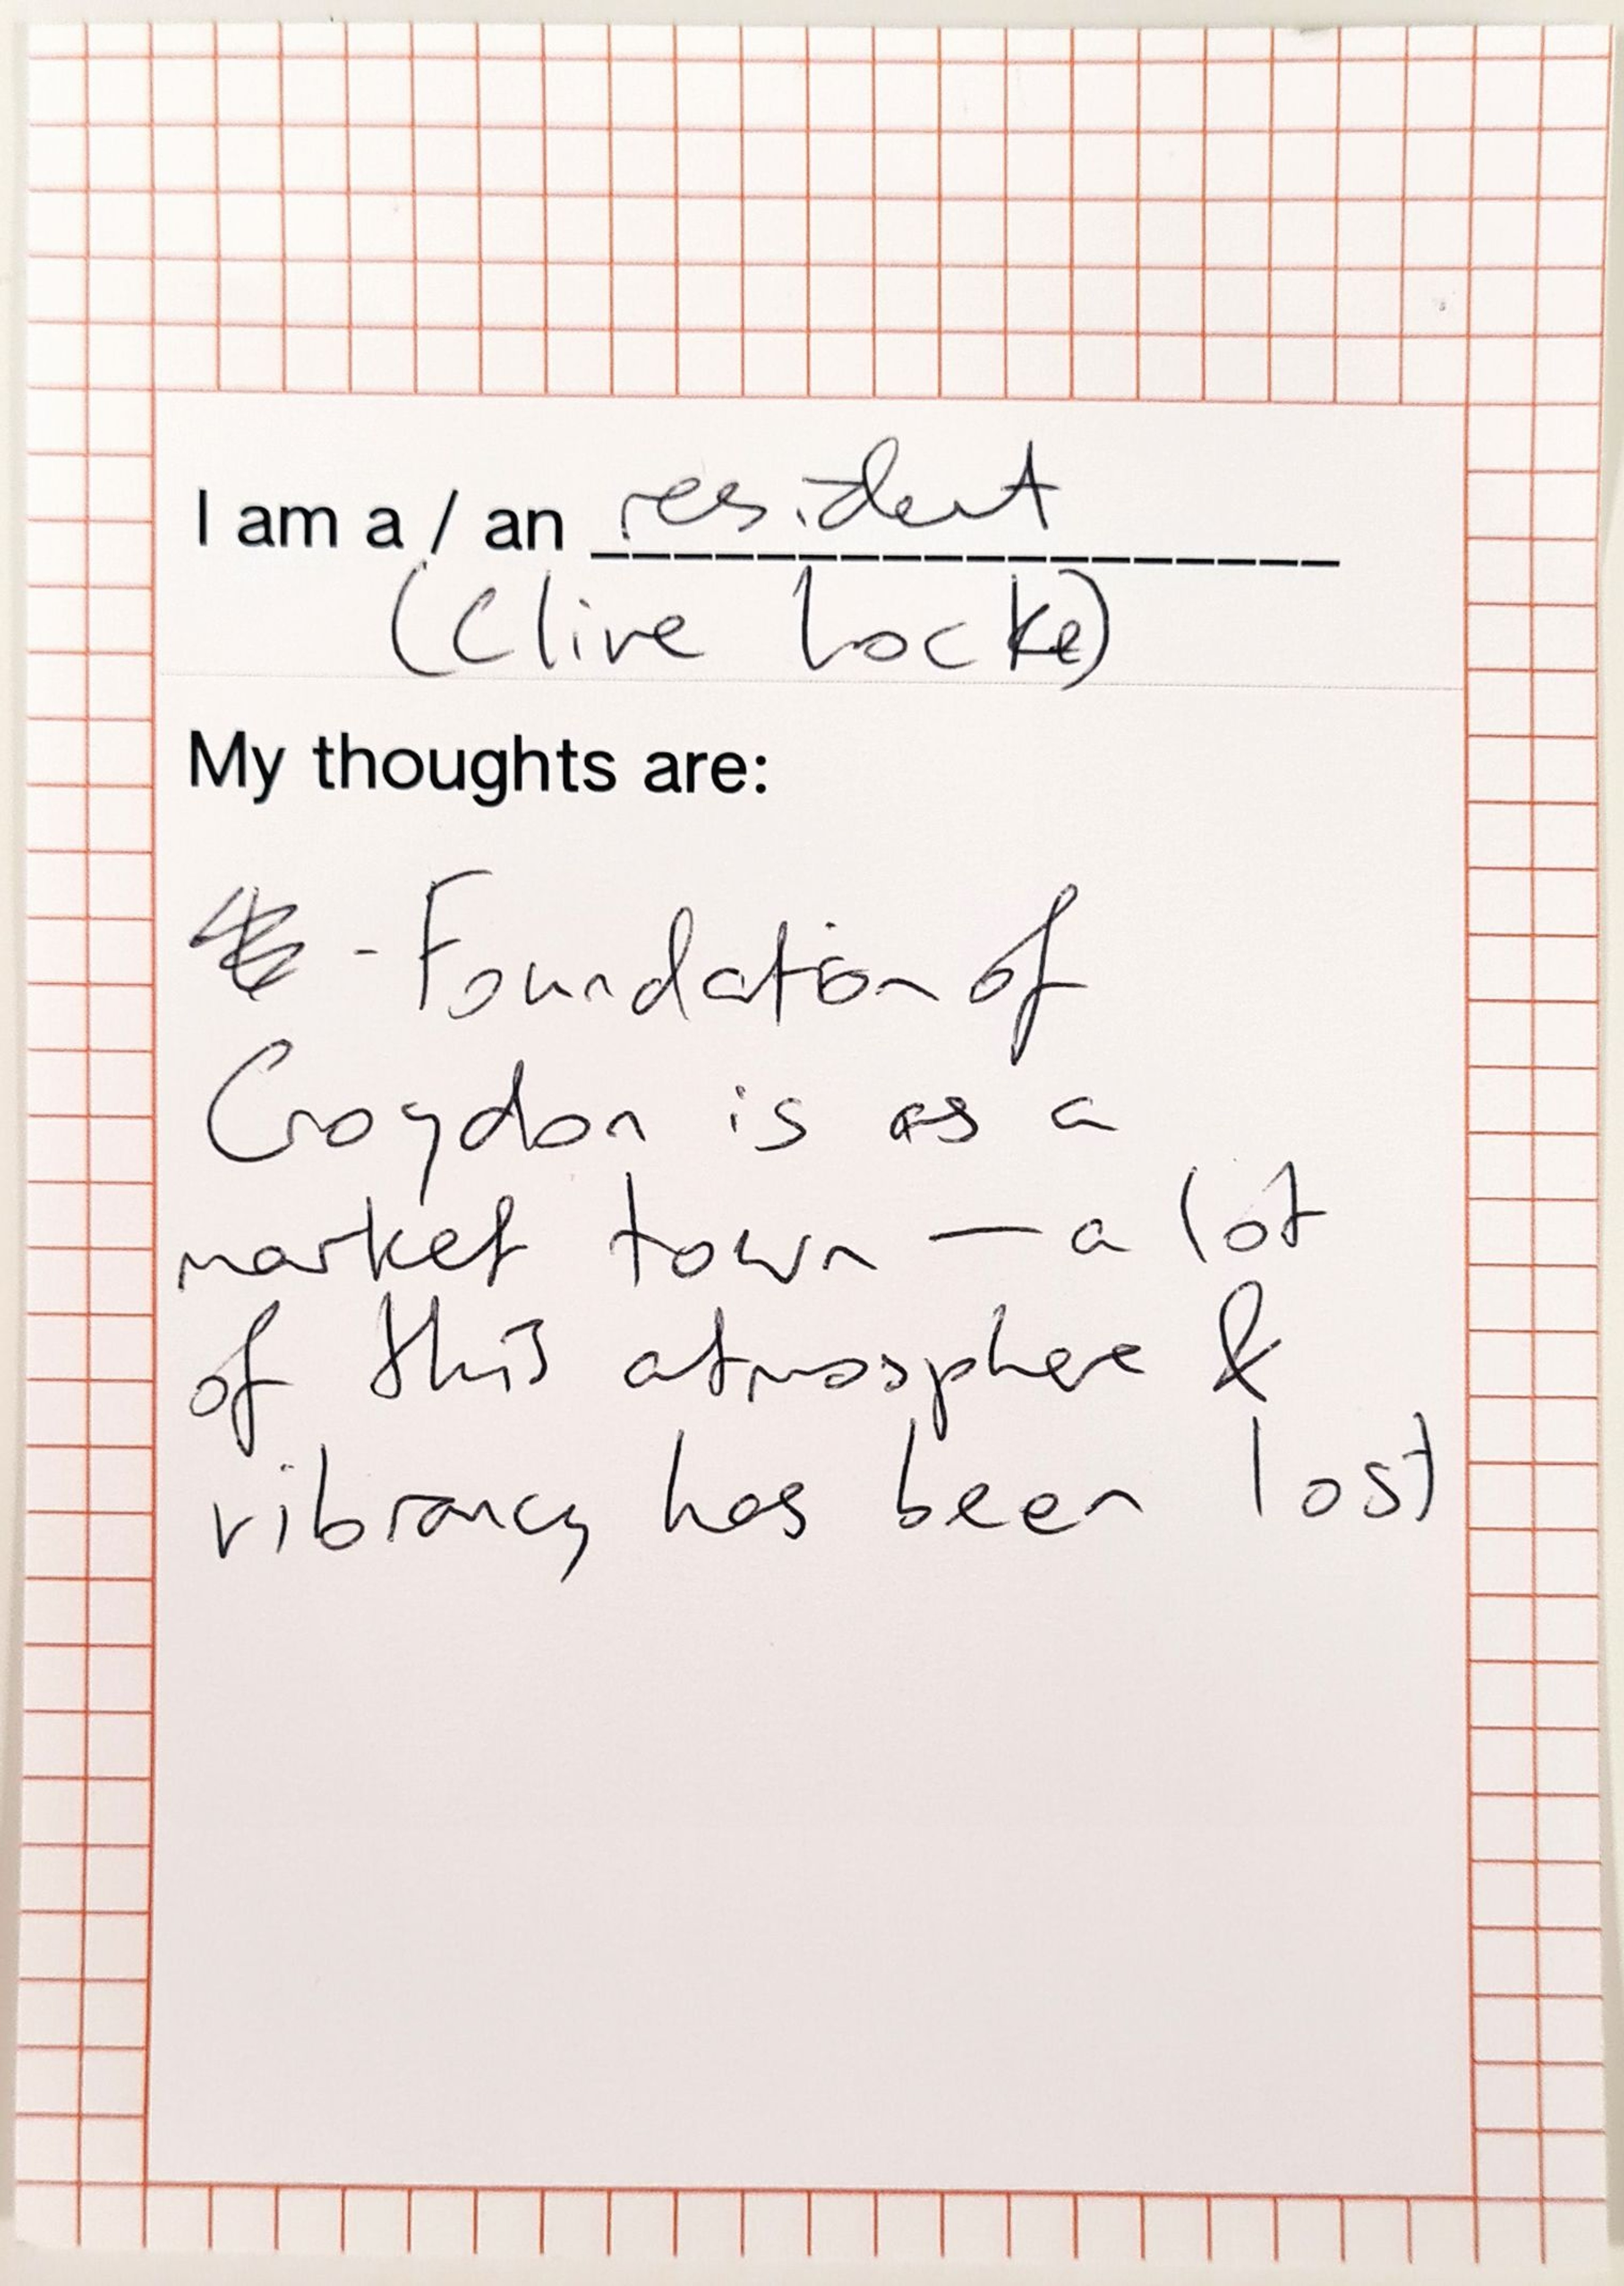 I am a / an resident
(Clive Locke)
My thoughts are:
- Foundation of
Croydon is as a
market town — a lot
of this atmosphere &
vibrancy has been lost